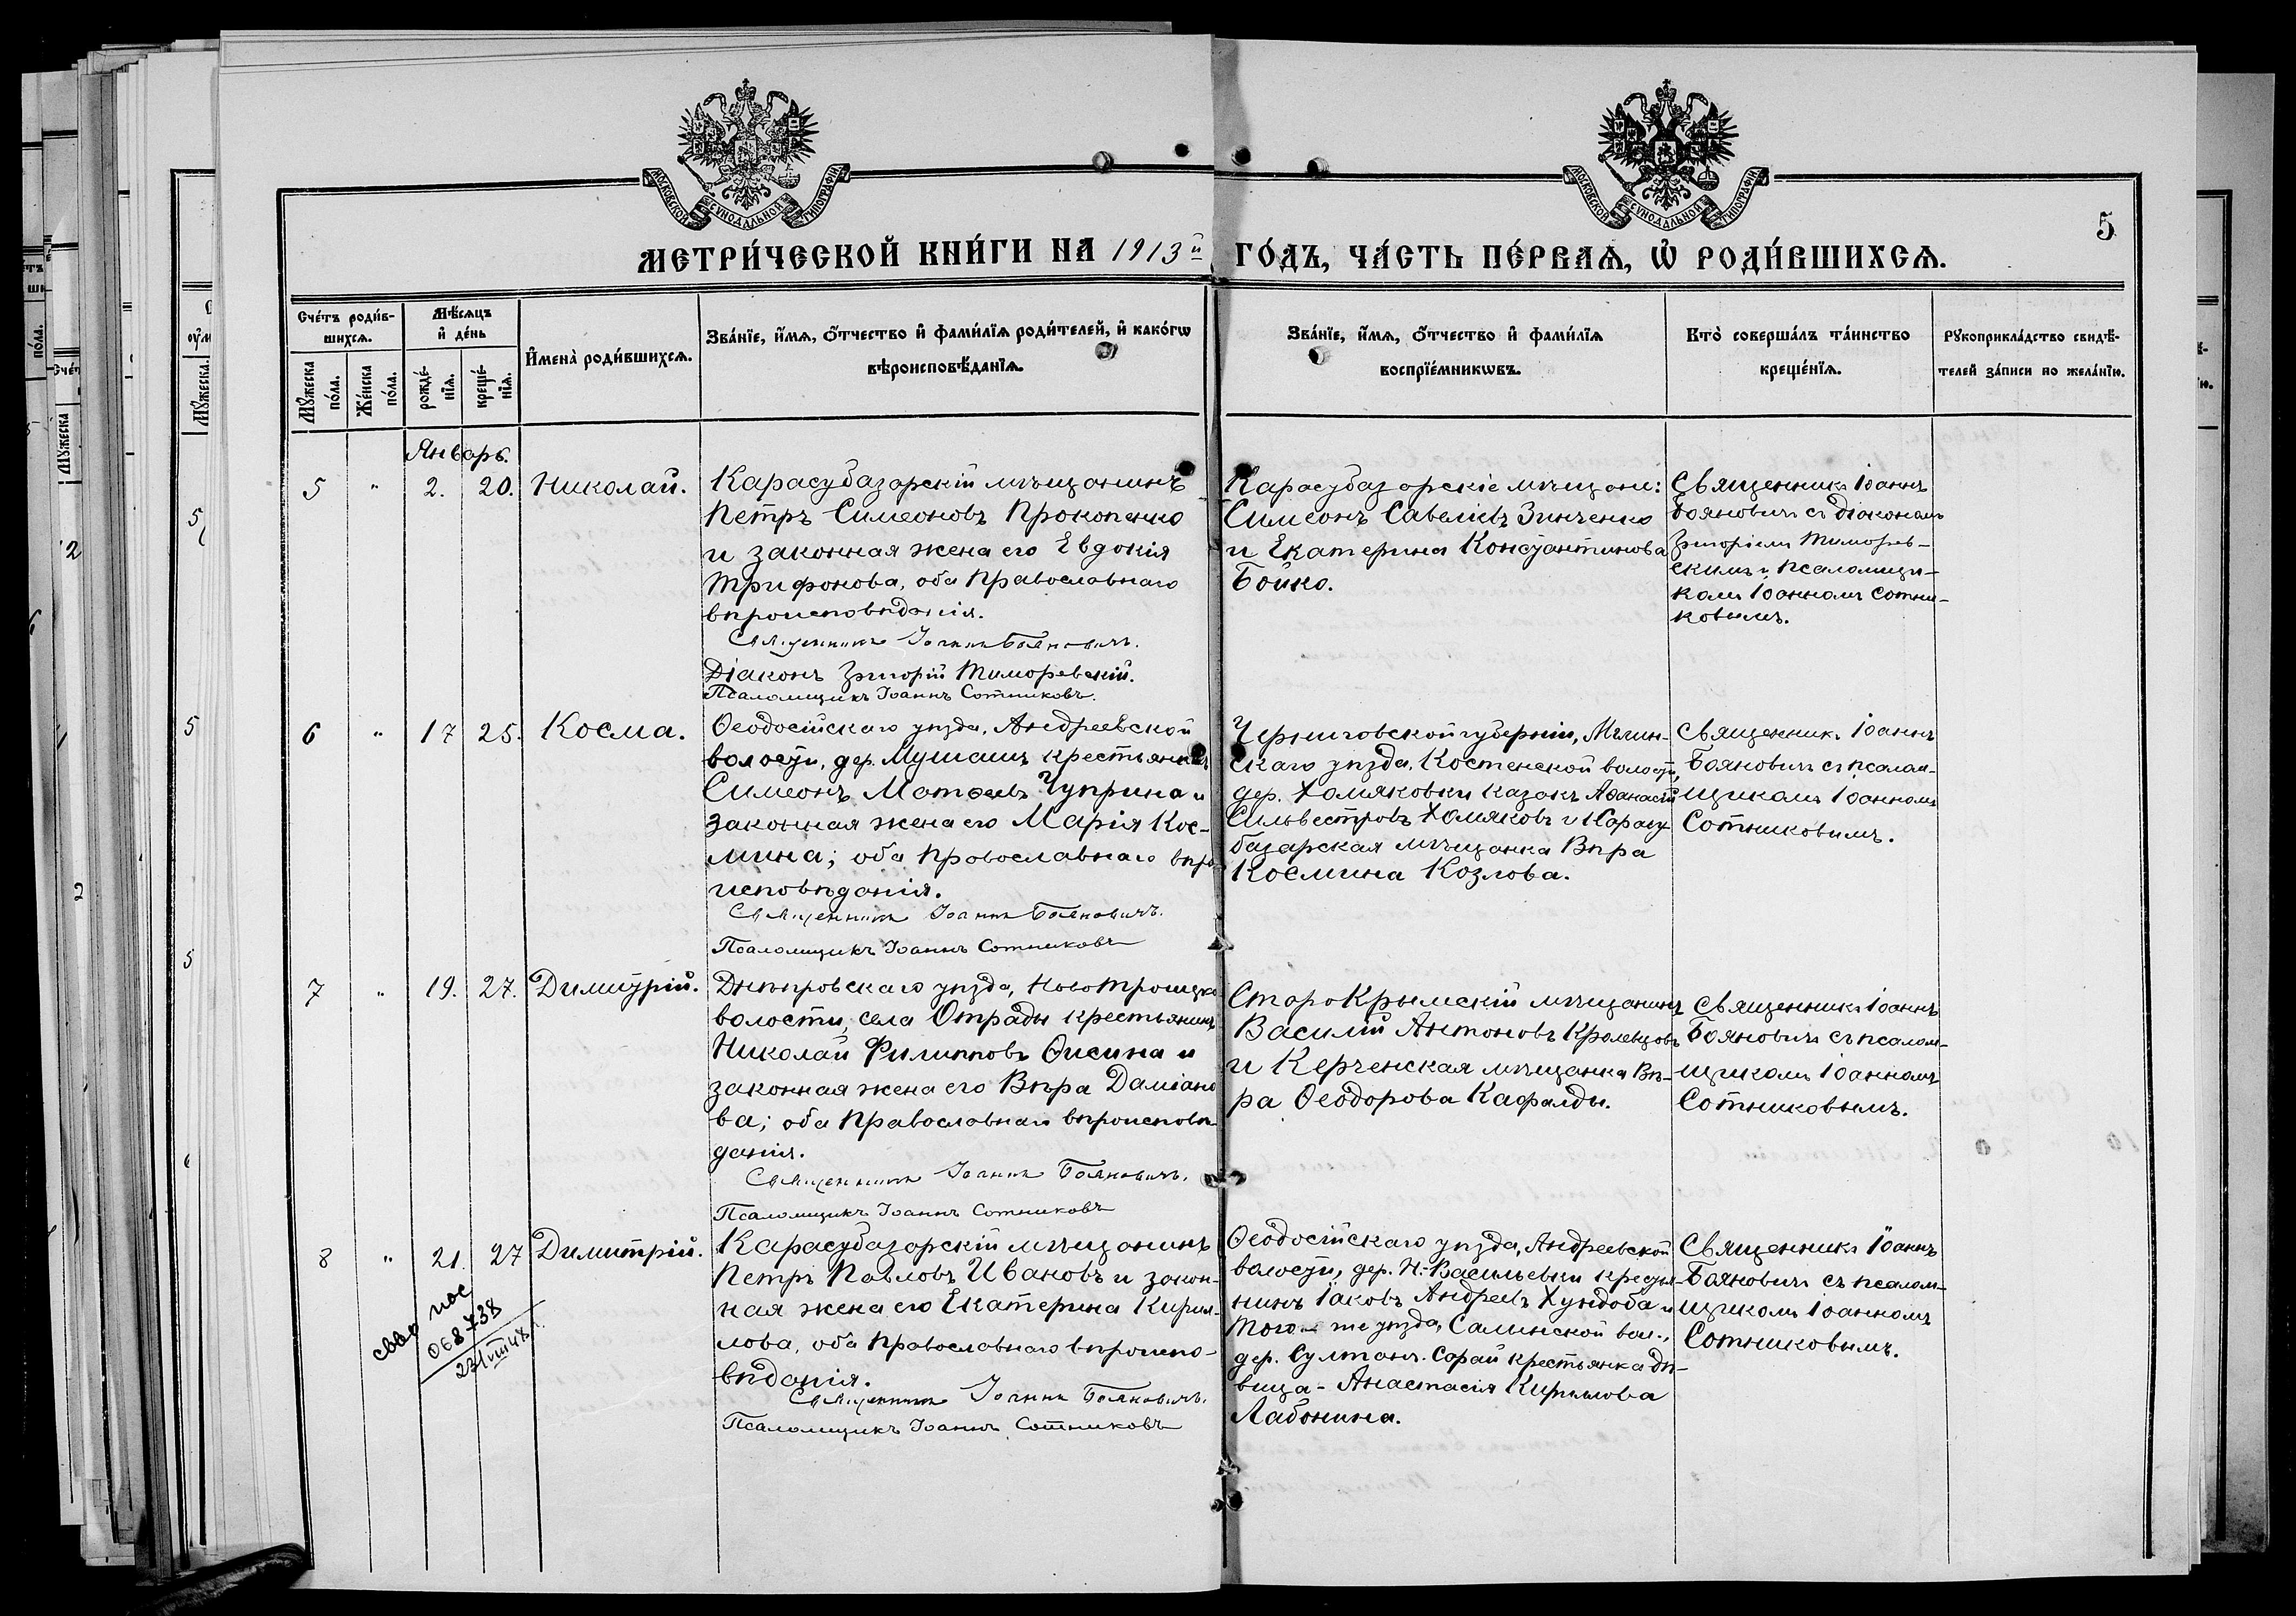 МОСКОВСКОЙ СѴНОДАЛЬНОЙ ТИПОГРАФІИ
МОСКОВСКОЙ СѴНОДАЛЬНОЙ ТИПОГРАФІИ
5
МЕТРИ́ЧЕСКОЙ КНИ́ГИ НА 1913й ГО́ДЪ, ЧА́СТЬ ПЕ́РВАѦ, Ѡ҆ РОДИ́ВШИХСѦ.
Сче́тъ роди́в-
шихсѧ.
Мꙋ́жеска по́ла.
Же́нска по́ла.
Мѣ́сѧцъ
и҆ де́нь
рожде́-нїѧ.
креще́-нїѧ.
И҆мена̀ роди́вшихсѧ.
Зва́нїе, и҆́мѧ, ѻ҆́тчество и҆ фами́лїѧ роди́телей, и҆ како́гѡ
вѣроисповѣ́данїѧ.
Зва́нїе, и҆́мѧ, ѻ҆́тчество и҆ фами́лїѧ
воспрїе́мникѡвъ.
Кто̀ соверша́лъ та́инство
креще́нїѧ.
Рꙋкоприкла́дство свидѣ́-
телей за́писи по жела́нїю.
Январь.
5 " 2. 20. Николай.
Карасубазарскій мѣщанинъ
Петръ Симеоновъ Прокопенко
и законная жена его Евдокія
Трифонова, оба Православнаго
вѣроисповѣданія.
Священникъ Іоаннъ Бояновичъ.
Діаконъ Григорій Тиморевскій.
Псаломщикъ Іоаннъ Сотниковъ.
Карасубазарскіе мѣщане:
Симеонъ Савеліевъ Зинченко
и Екатерина Константинова
Бойко.
Священникъ Іоаннъ
Бояновичъ съ діакономъ
Григоріемъ Тиморев-
скимъ и псаломщи-
комъ Іоанномъ Сотни-
ковымъ.
6 " 17 25. Косма.
Ѳеодосійскаго уѣзда, Андреевской
волости, дер. Мушашъ крестьянинъ
Симеонъ Матѳеевъ Чуприна и
законная жена его Марія Кос-
мина; оба Православнаго вѣро-
исповѣданія.
Священникъ Іоаннъ Бояновичъ.
Псаломщикъ Іоаннъ Сотниковъ
Черниговской губерніи, Мглин-
скаго уѣзда, Костенской волости,
дер. Хомяковки казакъ Аѳанасій
Сильвестровъ Хомяковъ и Карасу-
базарская мѣщанка Вѣра
Космина Козлова.
Священникъ Іоаннъ
Бояновичъ съ псалом-
щикомъ Іоанномъ
Сотниковымъ.
7 " 19. 27. Димитрій.
Днѣпровскаго уѣзда, Ново Троицкой
волости, села Отрады крестьянинъ
Николай Филипповъ Ѳисина и
законная жена его Вѣра Даміано
ва; оба Православнаго вѣроисповѣ-
данія.
Священникъ Іоаннъ Бояновичъ.
Псаломщикъ Іоаннъ Сотниковъ
Старо Крымскій мѣщанинъ
Василій Антоновъ Кролевцовъ
и Керченская мѣщанка Вѣ-
ра Ѳеодорова Кафалды.
Священникъ Іоаннъ
Бояновичъ съ псалом-
щикомъ Іоанномъ
Сотниковымъ.
8 " 21. 27 Димитрій.
Карасубазарскій мѣщанинъ
Петръ Павловъ Ивановъ и закон-
ная жена его Екатерина Кирил-
лова, оба Православнаго вѣроиспо-
вѣданія.
Священникъ Іоаннъ Бояновичъ.
Псаломщикъ Іоаннъ Сотниковъ
Ѳеодосійскаго уѣзда, Андреевской
волости, дер. Н.-Васильевки крестья-
нинъ Іаковъ Андреевъ Хундоба и
Того-же уѣзда, Салынской вол.,
дер. Султанъ-Сарай крестьянка дѣ-
вица - Анастасія Кириллова
Лабонина.
Священникъ Іоаннъ
Бояновичъ съ псалом-
щикомъ Іоанномъ
Сотниковымъ.
068738